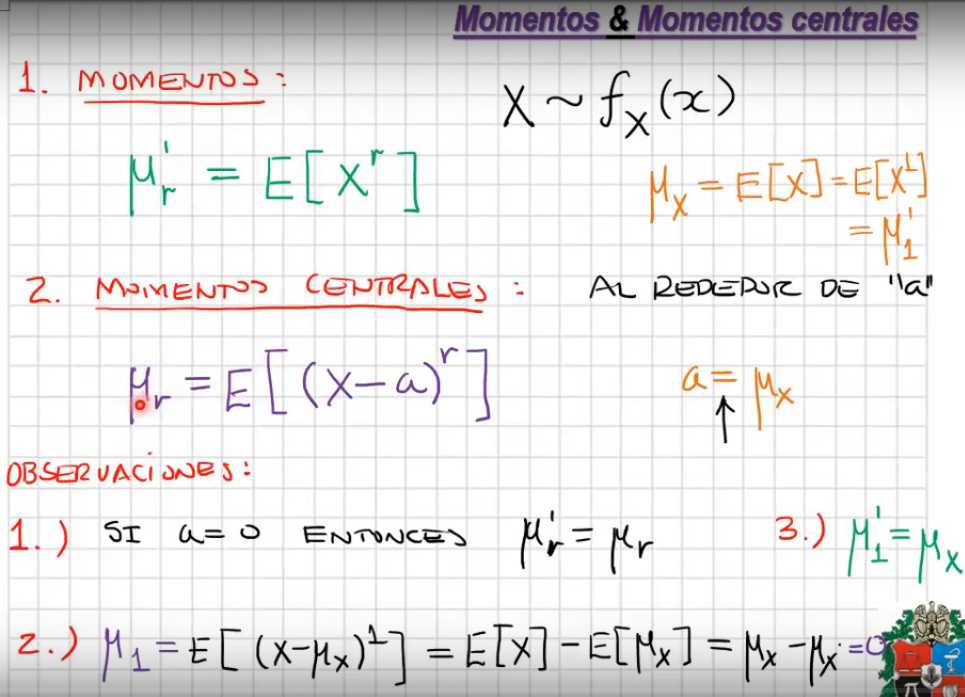 Momentos & Momentos centrales
1. MOMENTOS:
X ~ f_X(x)
μ'_r = E[X^r]
μ_X = E[X] = E[X^1]
= μ'_1
2. MOMENTOS CENTRALES: AL REDEDOR DE "a"
μ_r = E[(X-a)^r]
a = μ_X
↑
OBSERVACIONES:
1.) SI a=0 ENTONCES μ'_r = μ_r
3.) μ'_1 = μ_X
2.) μ_1 = E[(X-μ_X)^1] = E[X] - E[μ_X] = μ_X - μ_X = 0